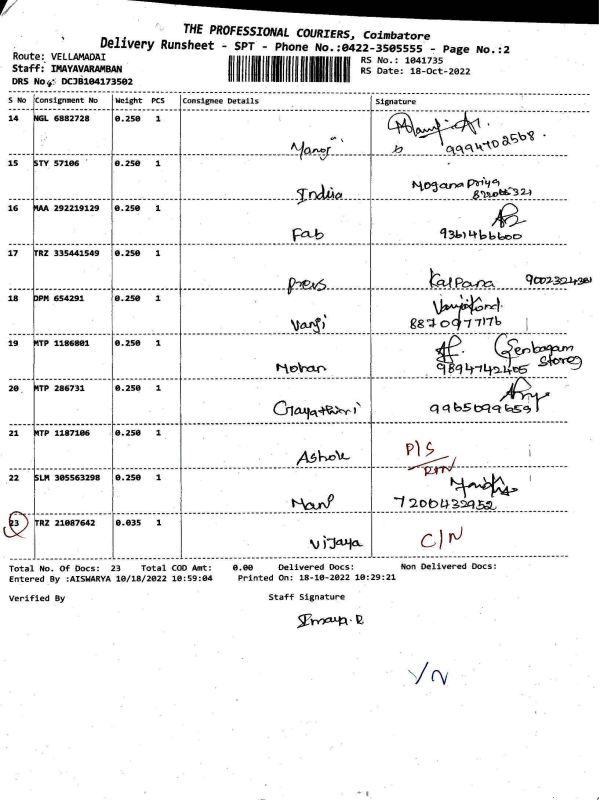 THE PROFESSIONAL COURIERS, Coimbatore
Delivery Runsheet - SPT - Phone No.:0422-3505555 - Page No.:2
Route: VELLAMADAI
RS No.: 1041735
Staff: IMAYAVARAMBAN
RS Date: 18-Oct-2022
DRS No: DCJB104173502
S No Consignment No Weight PCS Consignee Details Signature
14 NGL 6882728 0.250 1
Manoj 9994702568.
15 STY 57106 0.250 1
India Mogana Priya
16 MAA 292219129 0.250 1
Fab 9361466600
17 TRZ 335441549 0.250 1
Prevs Kalpana
18 DPM 654291 0.250 1
Vanji 8870977176
19 MTP 1186801 0.250 1
Senbagam
Stores
Mohan 9894742405
20 MTP 286731 0.250 1
Gayathiri 9965099659
21 MTP 1187106 0.250 1
P/S
Ashok RTN
22 SLM 305563298 0.250 1
Mani 7200432952
23 TRZ 21087642 0.035 1
Vijaya C/N
Total No. Of Docs: 23 Total COD Amt: 0.00 Delivered Docs: Non Delivered Docs:
Entered By :AISWARYA 10/18/2022 10:59:04 Printed On: 18-10-2022 10:29:21
Verified By Staff Signature
Imaya.R
Y/N